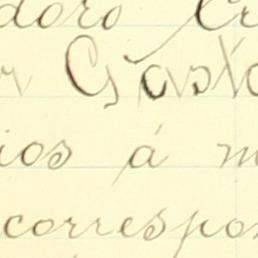 doro Cr
r Gasto
ios á m
correspon